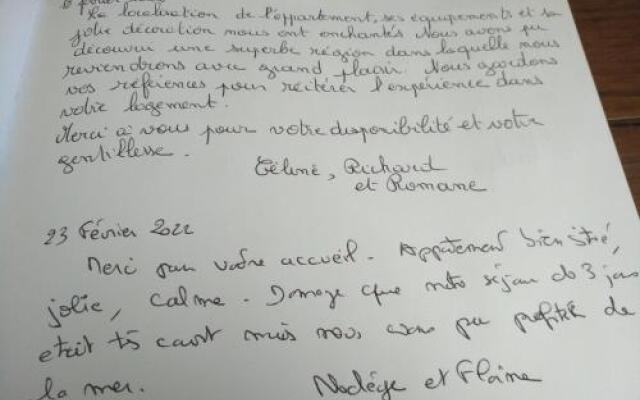 La localisation de l'appartement, ses équipements et sa
jolie décoration nous ont enchantés. Nous avons pu
découvrir une superbe région dans laquelle nous
reviendrons avec grand plaisir. Nous gardons
vos références pour réitérer l'expérience dans
votre logement.
Merci à vous pour votre disponibilité et votre
gentillesse.
Céline, Richard
et Romane
23 Février 2022
Merci pour votre accueil. Appartement bien situé,
jolie, calme. Domage que notre séjour de 3 jours
etait très court mais nous avons pu profiter de
la mer.
Nadège et